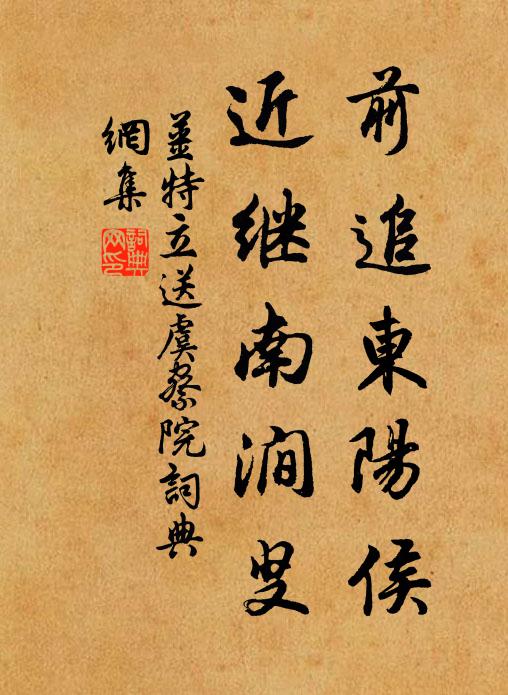 前追東陽侯
近继南澗叟
姜特立送虞察院詞典
網集
詞典
网印